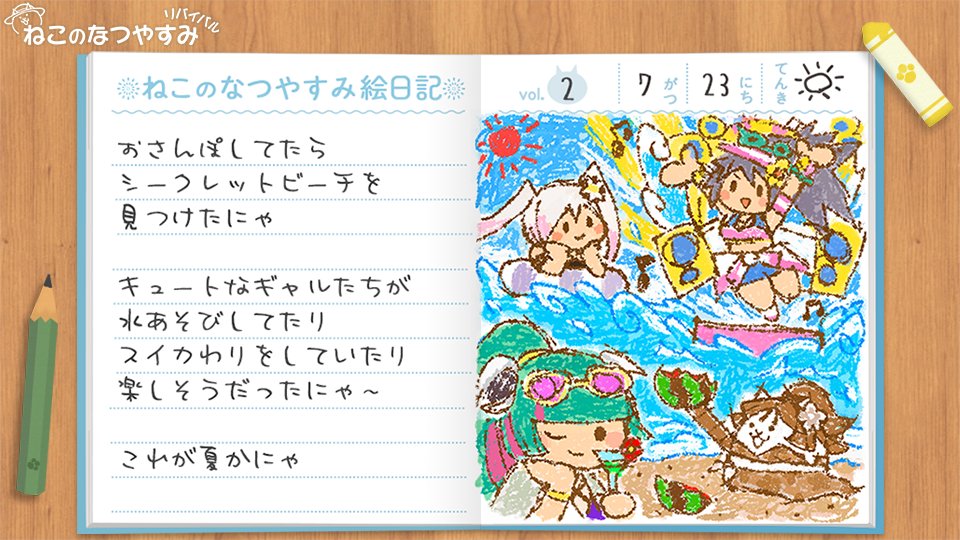 ねこのなつやすみ
リバイバル
ねこのなつやすみ絵日記
vol. 2
7がつ
23にち
てんき
おさんぽしてたら
シークレットビーチを
見つけたにゃ
キュートなギャルたちが
水あそびしてたり
スイカわりをしていたり
楽しそうだったにゃ～
これが夏かにゃ